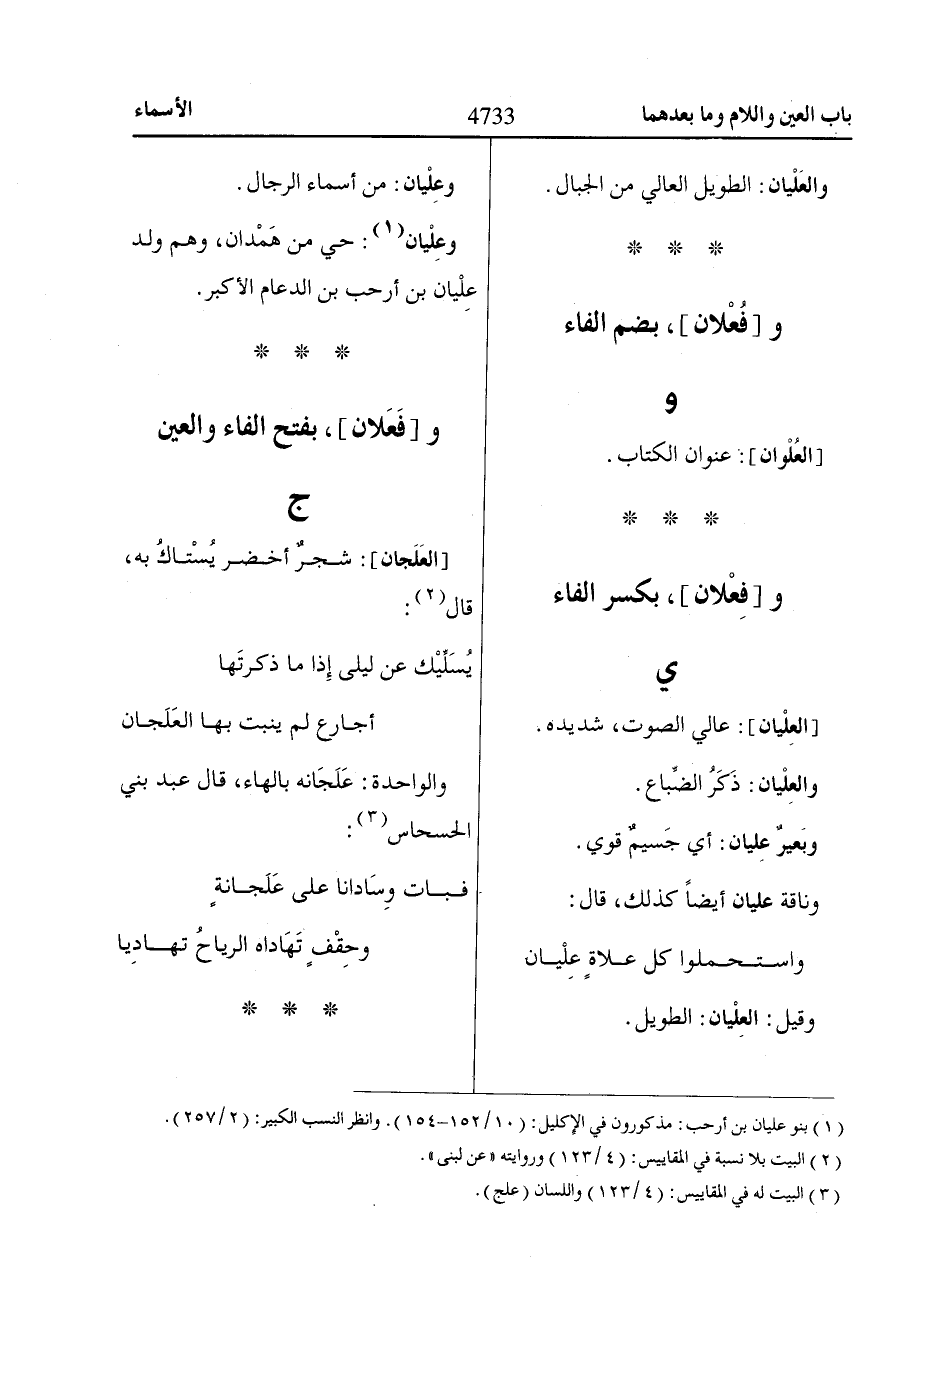 باب العين واللام وما بعدهما 4733 الأسماء
والعَلْيان: الطويل العالي من الجبال.
* * *
و [فُعْلان]، بضم الفاء
و
[العُلْوان]: عنوان الكتاب.
* * *
و [فِعْلان]، بكسر الفاء
ي
[العِلْيان]: عالي الصوت، شديده.
والعِلْيان: ذَكَرُ الضِّباع.
وبَعيرٌ عِليان: أي جَسيمٌ قوي.
وناقة عليان أيضاً كذلك، قال:
واستحملوا كل علاةٍ عِلْيان
وقيل: العِلْيان: الطويل.
وعِلْيان: من أسماء الرجال.
وعِلْيان(١): حي من هَمْدان، وهم ولد
عِلْيان بن أرحب بن الدعام الأكبر.
* * *
و [فَعَلان]، بفتح الفاء والعين
ج
[العَلَجان]: شجرٌ أخضر يُسْتاكُ به،
قال(٢):
يُسَلِّيْك عن ليلى إِذا ما ذكرتَها
أجارع لم ينبت بها العَلَجان
والواحدة: عَلَجَانه بالهاء، قال عبد بني
الحسحاس(٣):
فبات وِسَادانا على عَلَجانةٍ
وحِقْفٍ تَهَاداه الرياحُ تهادِيا
* * *
(١) بنو عليان بن أرحب: مذكورون في الإكليل: (١٠/ ١٥٢-١٥٤). وانظر النسب الكبير: (٢/ ٢٥٧).
(٢) البيت بلا نسبة في المقاييس: (٤/ ١٢٣) وروايته «عن لبنى».
(٣) البيت له في المقاييس: (٤/ ١٢٣) واللسان (علج).